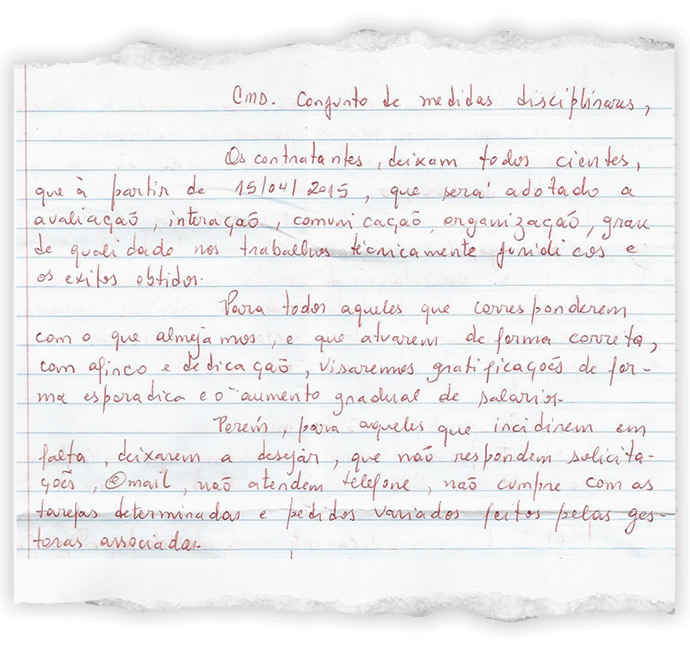 CMD. Conjunto de medidas disciplinares,
Os contratantes, deixam todos cientes,
que à partir de 15/04/2015, que será adotado a
avaliação, interação, comunicação, organização, grau
de qualidade nos trabalhos técnicamente jurídicos e
os exitos obtidos.
Para todos aqueles que corresponderem
com o que almejamos, e que atuarem de forma correta,
com afinco e dedicação, visaremos gratificações de for-
ma esporadica e o aumento gradual de salários.
Porém, para aqueles que incidirem em
falta, deixarem a desejar, que não respondem solicita-
ções, @mail, não atendem telefone, não cumpre com as
tarefas determinadas e pedidos variados feitos pelas ges-
toras associadas.